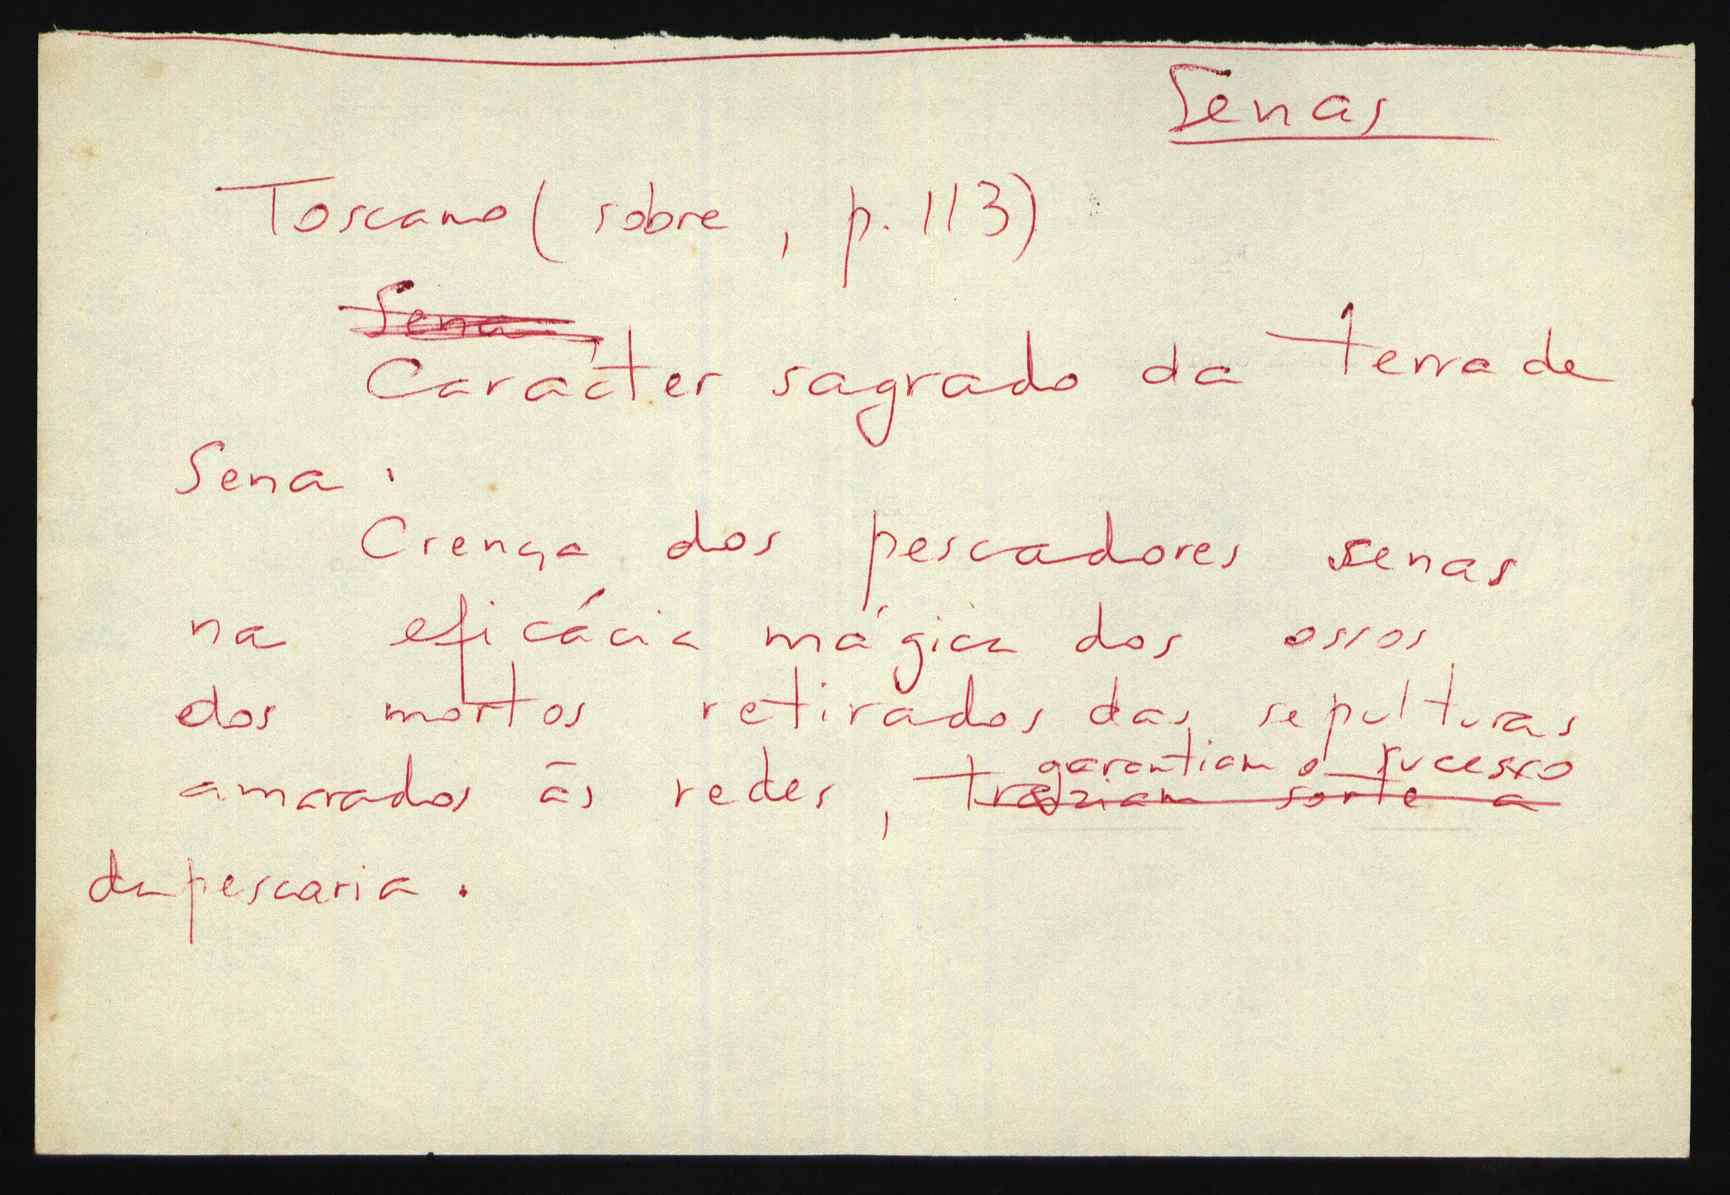 Senas
Toscano (sobre, p. 113)
Sena
Carácter sagrado da terra de
Sena.
Crença dos pescadores senas
na eficácia mágica dos ossos
dos mortos retirados das sepulturas
garantiam o sucesso
amarados às redes, traziam sorte a
da pescaria.